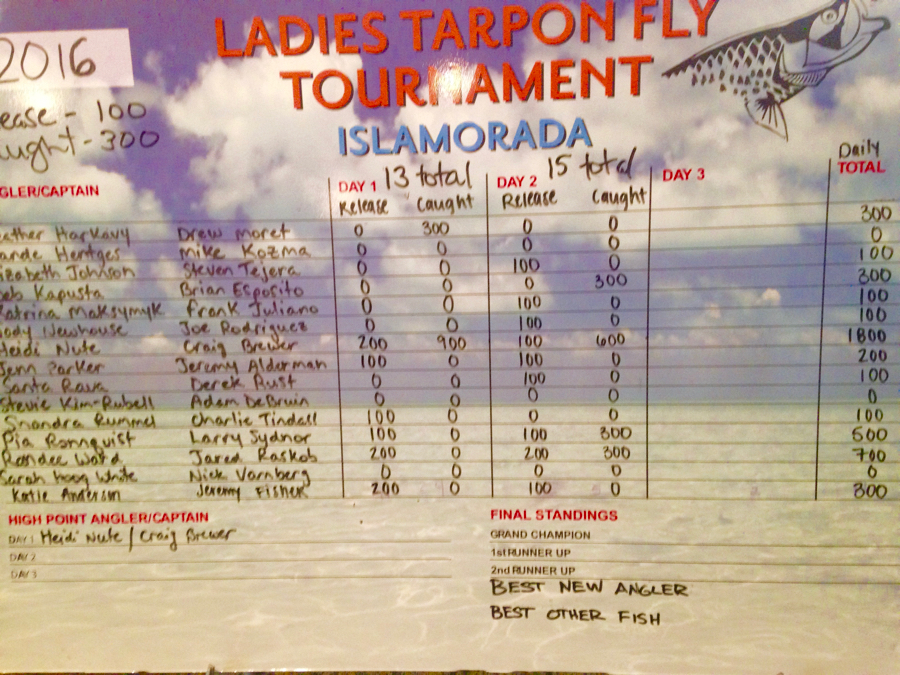 LADIES TARPON FLY
2016
TOURNAMENT
ease - 100
ught - 300
ISLAMORADA
GLER/CAPTAIN DAY 1 13 total DAY 2 15 total DAY 3 Daily TOTAL
Release Caught Release Caught
eather Harkavy Drew Moret 0 300 0 0 300
ande Hentges Mike Kozma 0 0 0 0 0
izabeth Johnson Steven Tejera 0 0 100 0 100
eb Kapusta Brian Esposito 0 0 0 300 300
Katrina Maksymyk Frank Juliano 0 0 100 0 100
ody Newhouse Joe Rodriguez 0 0 100 0 100
Heidi Nute Craig Brewer 200 900 100 600 1800
Jenn Parker Jeremy Alderman 100 0 100 0 200
Santa Rava Derek Rust 0 0 100 0 100
Stevie Kim-Rubell Adam DeBruin 0 0 0 0 0
Snandra Rummel Charlie Tindall 100 0 0 0 100
Pia Ronnquist Larry Sydnor 100 0 100 300 500
Randee Ward Jared Raskob 200 0 200 300 700
Sarah Hoag White Nick Varnberg 0 0 0 0 0
Katie Anderson Jeremy Fisher 200 0 100 0 300
HIGH POINT ANGLER/CAPTAIN
DAY 1 Heidi Nute / Craig Brewer
DAY 2
DAY 3
FINAL STANDINGS
GRAND CHAMPION
1st RUNNER UP
2nd RUNNER UP
BEST NEW ANGLER
BEST OTHER FISH